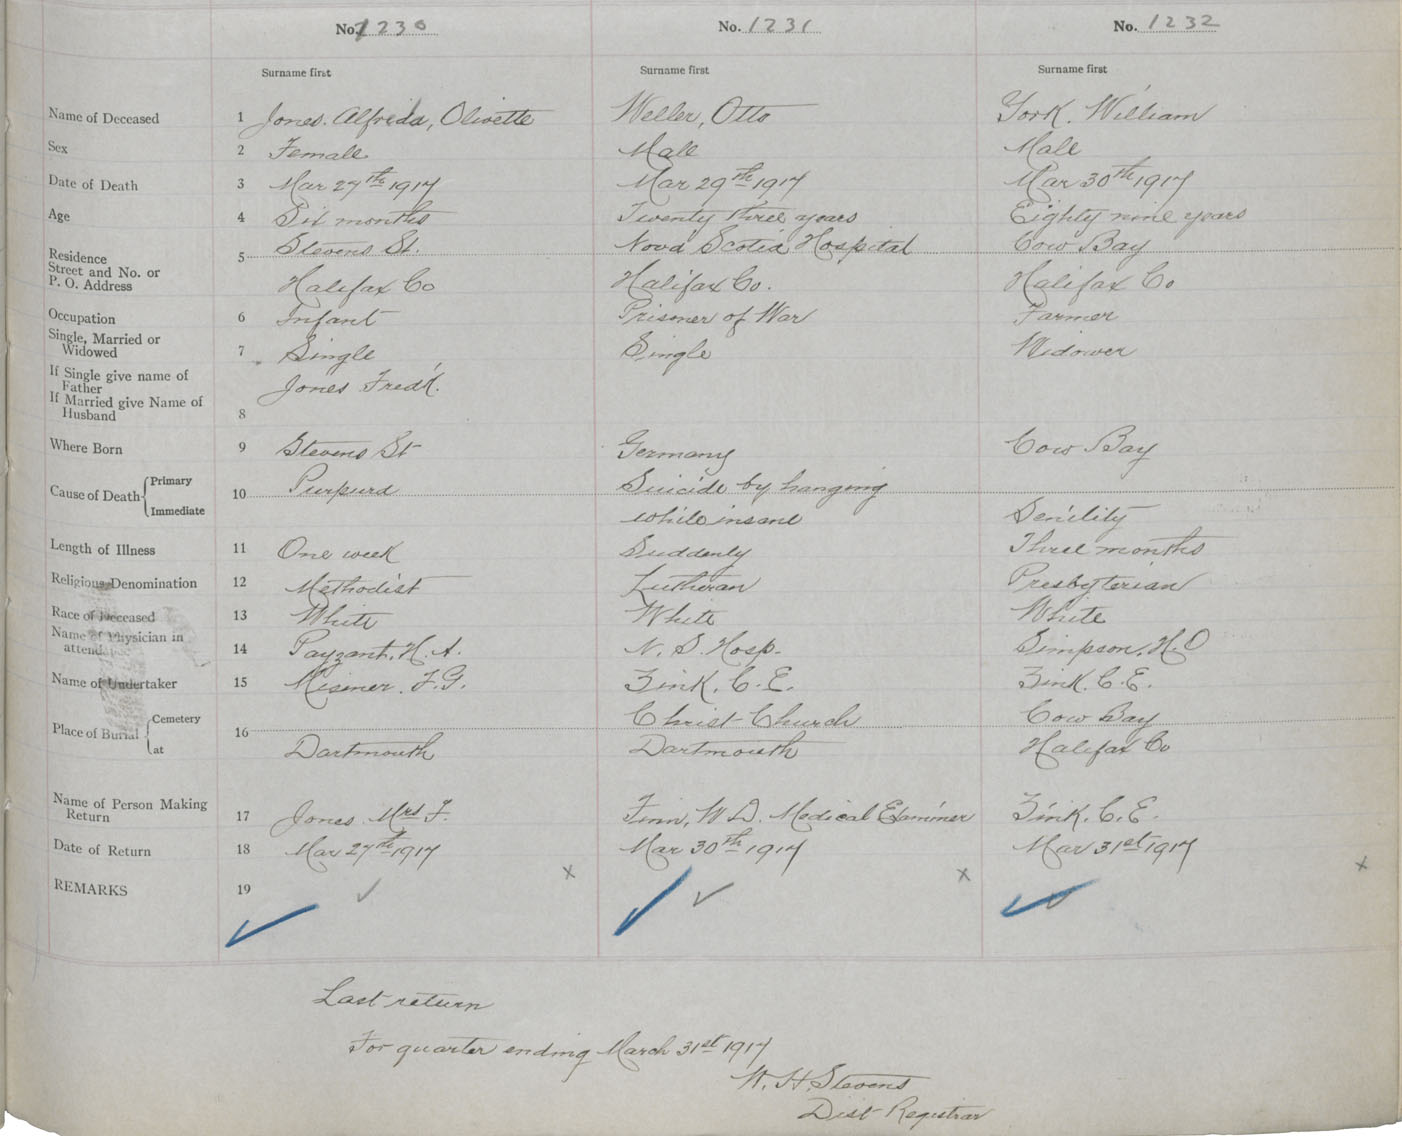 No. 1230 No. 1231 No. 1232
Surname first Surname first Surname first
Name of Deceased 1 Jones. Alfreda, Olivette Weller, Otto York. William
Sex 2 Female Male Male
Date of Death 3 Mar 27th 1917 Mar 29th 1917 Mar 30th 1917
Age 4 Six months Twenty three years Eighty nine years
Residence 5 Stevens St. Nova Scotia Hospital Cow Bay
Street and No. or
P. O. Address Halifax Co Halifax Co. Halifax Co
Occupation 6 Infant Prisoner of War Farmer
Single, Married or
Widowed 7 Single Single Widower
If Single give name of
Father Jones Fredk.
If Married give Name of
Husband 8
Where Born 9 Stevens St Germany Cow Bay
Cause of Death Primary 10 Purpura Suicide by hanging
Immediate while insane Senility
Length of Illness 11 One week Suddenly Three months
Religious Denomination 12 Methodist Lutheran Presbyterian
Race of Deceased 13 White White White
Name of Physician in
attend 14 Payzant, H. A. N. S. Hosp. Simpson, H. O
Name of Undertaker 15 Misener. F. G. Zink, C. E. Zink. C. E.
Place of Burial Cemetery 16 Christ Church Cow Bay
at Dartmouth Dartmouth Halifax Co
Name of Person Making
Return 17 Jones. Mrs F. Finn, W. D. Medical Examiner Zink, C. E.
Date of Return 18 Mar 27th 1917 Mar 30th 1917 Mar 31st 1917
x x x
REMARKS 19
Last return
For quarter ending March 31st 1917
W. H. Stevens
Dist Registrar